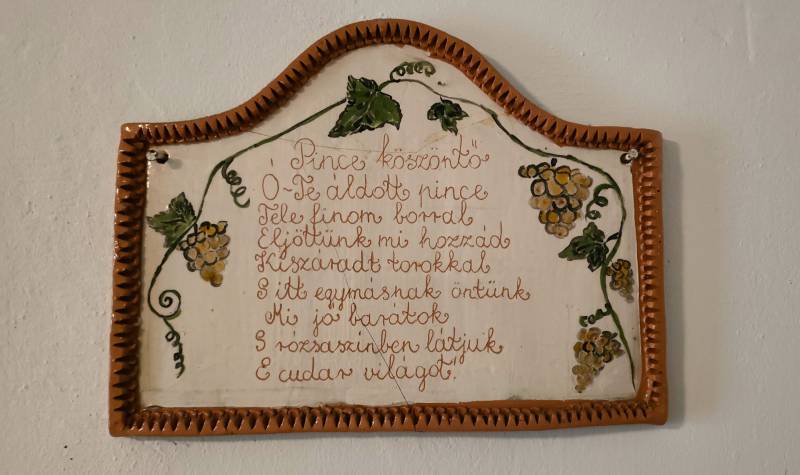 Pince köszöntő
Ó-Te áldott pince
Tele finom borral
Eljöttünk mi hozzád
Kiszáradt torokkal
S itt egymásnak öntünk
Mi jó barátok
S rózsaszínben látjuk
E cudar világot!